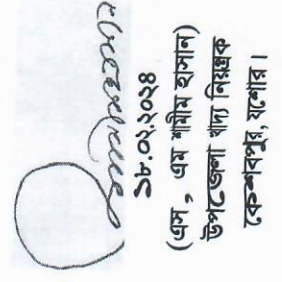 ১৮.০২.২০২৪
(এস, এম শামীম হাসান)
উপজেলা খাদ্য নিয়ন্ত্রক
কেশবপুর, যশোর।